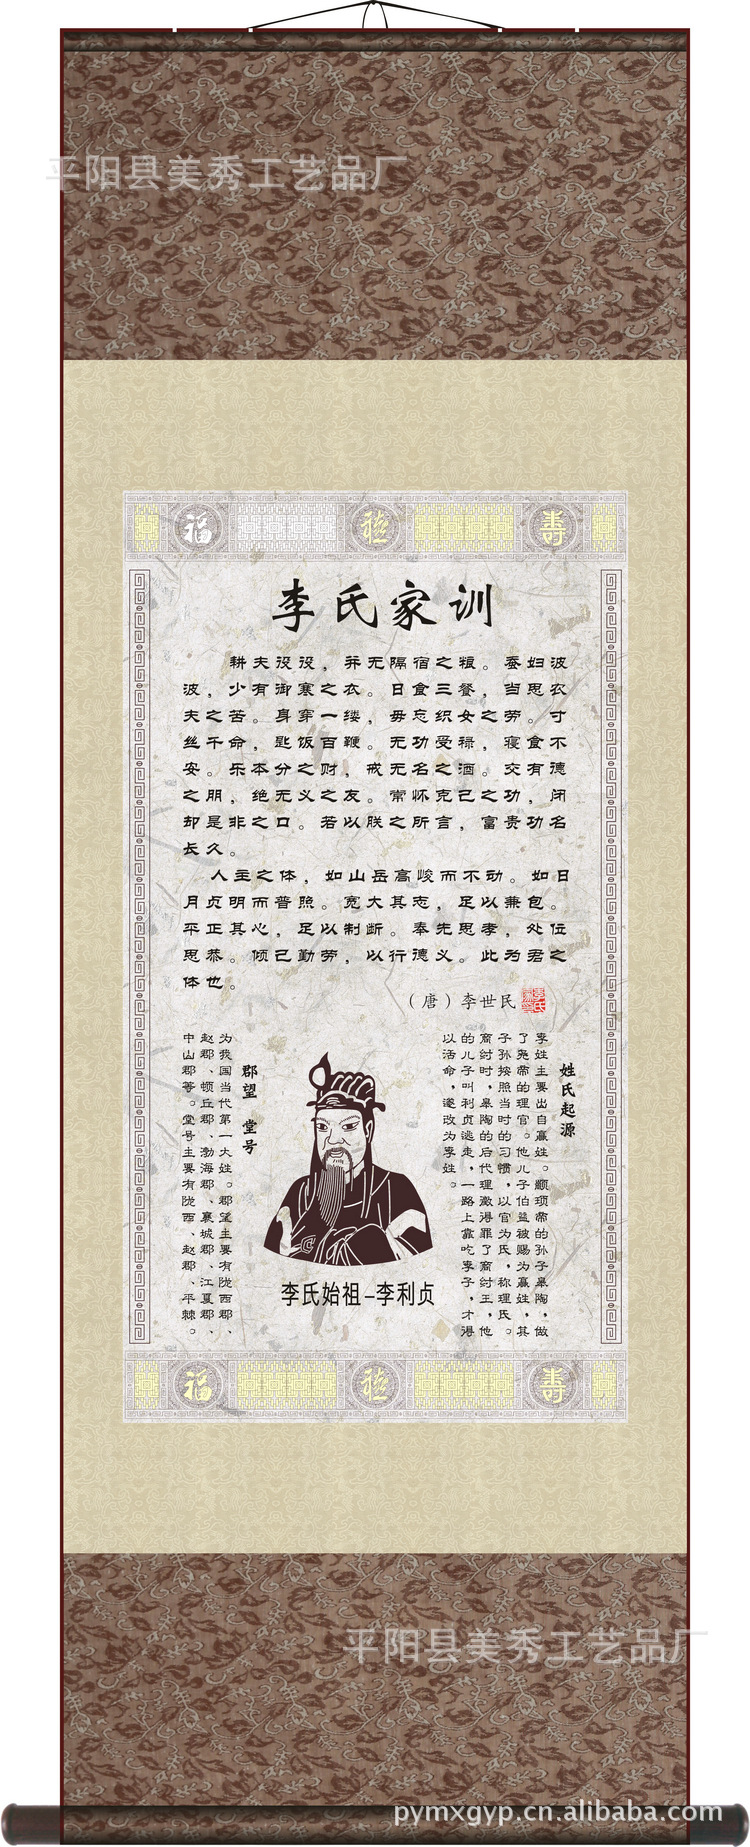 平阳县美秀工艺品厂
福
禧
寿
李氏家训
耕夫役役，并无隔宿之粮。蚕妇波
波，少有御寒之衣。日食三餐，当思农
夫之苦。身穿一缕，毋忘织女之劳。寸
丝千命，匙饭百鞭。无功受禄，寝食不
安。乐本分之财，戒无名之酒。交有德
之朋，绝无义之友。常怀克己之功，闭
却是非之口。若以朕之所言，富贵功名
长久。
人主之体，如山岳高峻而不动。如日
月贞明而普照。宽大其志，足以兼包。
平正其心，足以制断。奉先思孝，处位
思恭。倾己勤劳，以行德义。此为君之
体也。
（唐）李世民
姓氏起源
李姓主要出自嬴姓。颛顼帝的孙子皋陶，做
了尧帝的理官。他儿子伯益被赐为嬴姓，其
子孙按照当时的习惯，以官为氏，称理氏。
商纣时，皋陶的后代理徵得罪了商纣王，他
的儿子叫利贞逃走，一路上靠吃李子，才得
以活命，遂改为李姓。
郡望 堂号
为我国当代第一大姓。郡望主要有陇西郡、
赵郡、顿丘郡、渤海郡、襄城郡、江夏郡、
中山郡等。堂号主要有陇西、赵郡、平棘。
李氏始祖–李利贞
福
禧
寿
平阳县美秀工艺品厂
pymxgyp.cn.alibaba.com